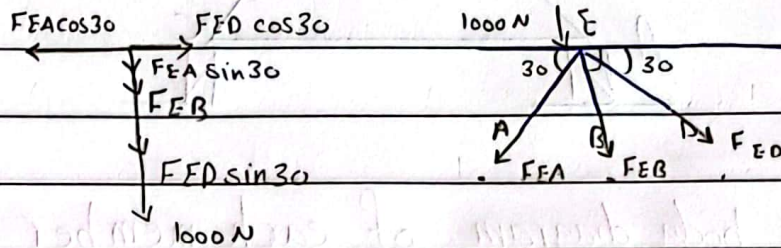 FEAcos30 FED cos30
FEA sin30
FEB
FED sin30
1000 N
1000 N E
30 30
A B D
FEA FEB FED